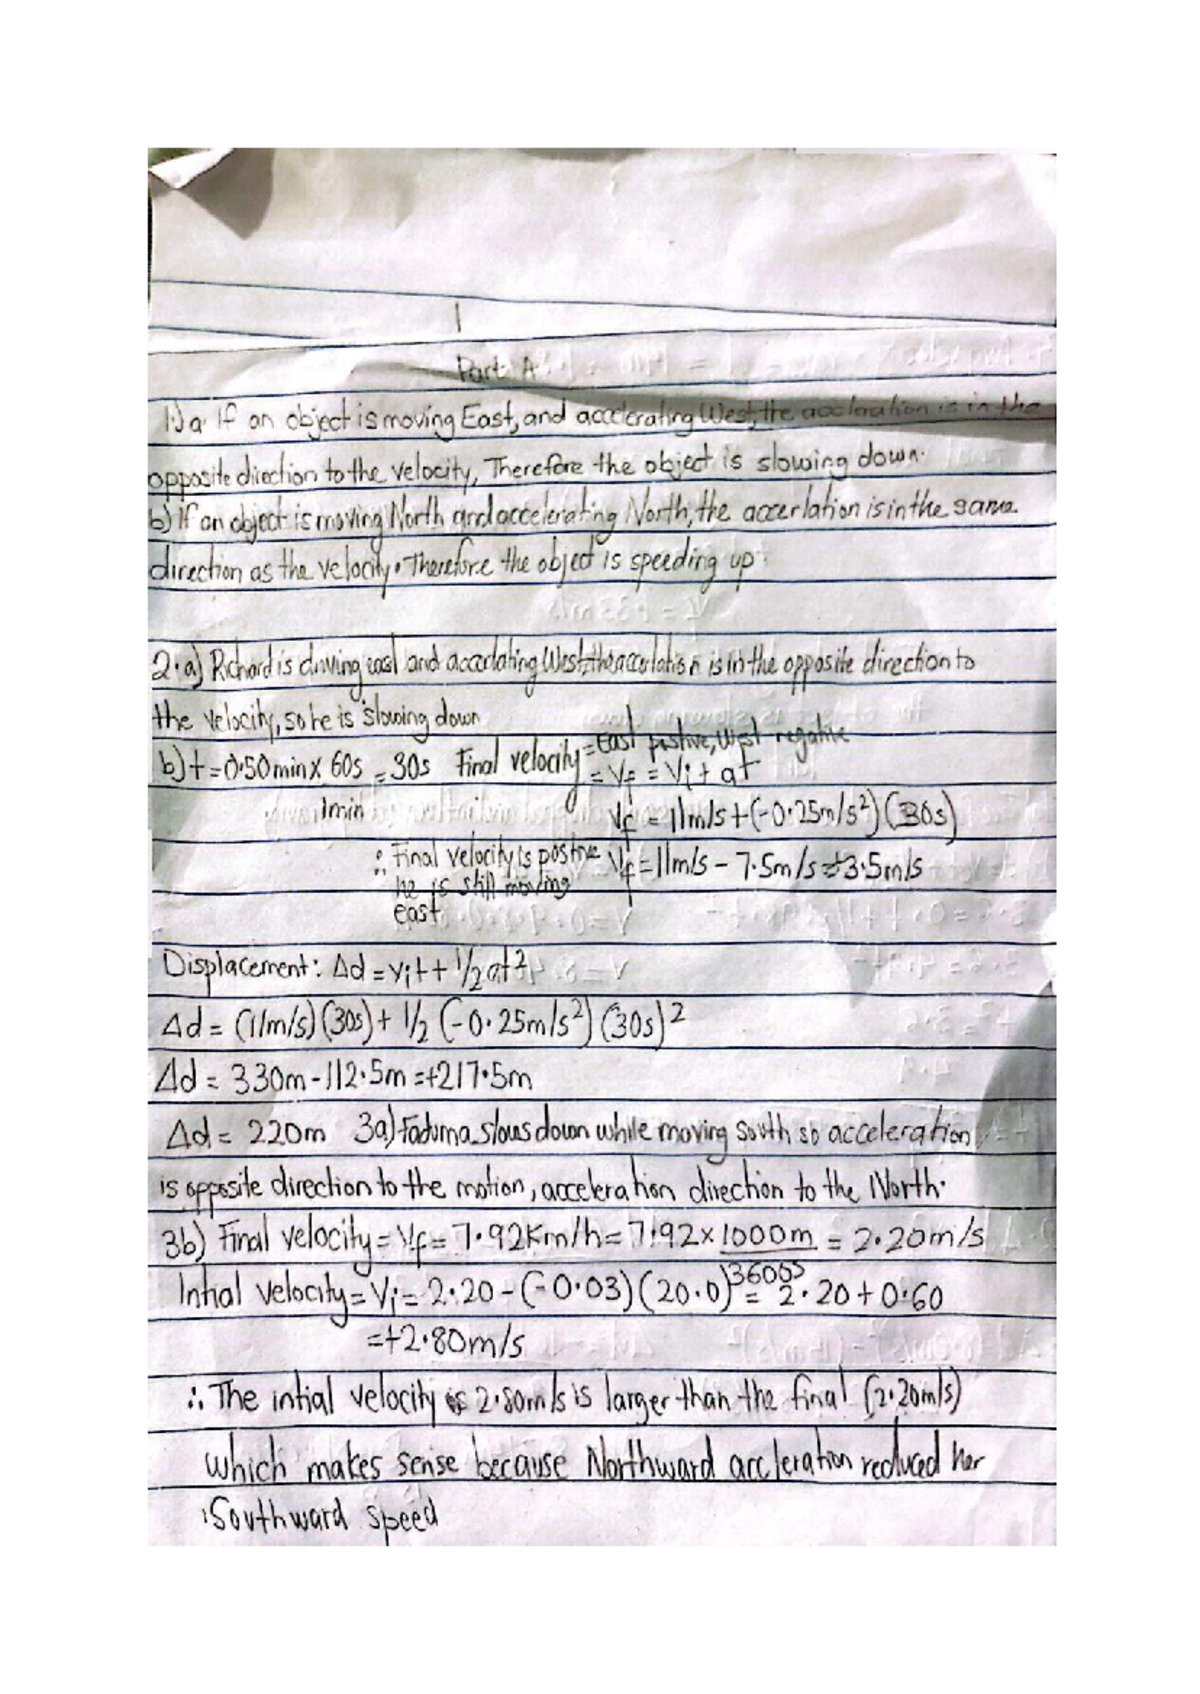 Part A
1.) a. If an object is moving East, and accelerating West, the accleration is in the
opposite direction to the velocity, Therefore the object is slowing down.
b) If an object is moving North and accelerating North, the accerlation is in the same
direction as the velocity. Therefore the object is speeding up.
2.a) Richard is driving east and accerlating West, the accerlation is in the opposite direction to
the velocity, so he is slowing down
b) t = 0.50min x 60s = 30s Final velocity = East positive, West negative
1min
= Vf = Vi + at
Vf = 11m/s + (-0.25m/s²)(30s)
∴ Final velocity is positive Vf = 11m/s - 7.5m/s = +3.5m/s
he is still moving
east
Displacement: Δd = vit + 1/2 at²
Δd = (11m/s)(30s) + 1/2 (-0.25m/s²)(30s)²
Δd = 330m - 112.5m = +217.5m
Δd = 220m 3a) Faduma slows down while moving south so acceleration
is opposite direction to the motion, acceleration direction to the North.
3b) Final velocity = Vf = 7.92Km/h = 7.92 x 1000m = 2.20m/s
3600s
Intial velocity = Vi = 2.20 - (-0.03)(20.0) = 2.20 + 0.60
= +2.80m/s
∴ The intial velocity is 2.80m/s is larger than the final (2.20m/s)
which makes sense because Northward accleration reduced her
Southward speed